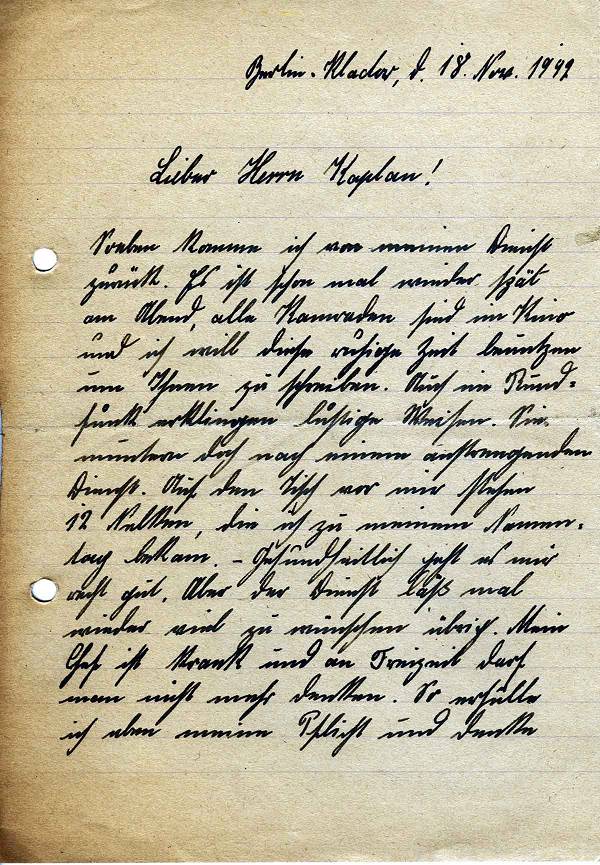 Berlin-Kladow, d. 18. Nov. 1942
Lieber Herrn Kaplan!
Soeben komme ich von meinen Dienst
zurück. Es ist schon mal wieder spät
am Abend, alle Kameraden sind im Kino
und ich will diese ruhige Zeit benutzen
um Ihnen zu schreiben. Auch im Rund-
funk erklingen lustige Weisen. Sie
muntern doch nach einem anstrengenden
Dienst. Auf den Tisch vor mir stehen
12 Nelken, die ich zu meinem Namens-
tag bekam. – Gesundheitlich geht es mir
recht gut. Aber der Dienst läßt mal
wieder viel zu wünschen übrig. Mein
Chef ist krank und an Freizeit darf
man nicht mehr denken. So erfülle
ich eben meine Pflicht und denke